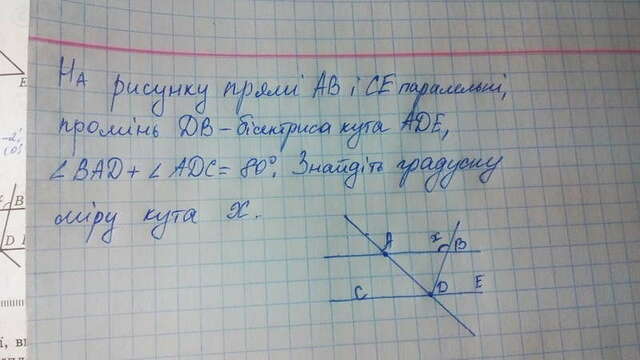 На рисунку прямі АВ і СЕ паралельні,
промінь DB - бісектриса кута ADE,
∠BAD + ∠ADC = 80°. Знайдіть градусну
міру кута X.
A x B
C D E